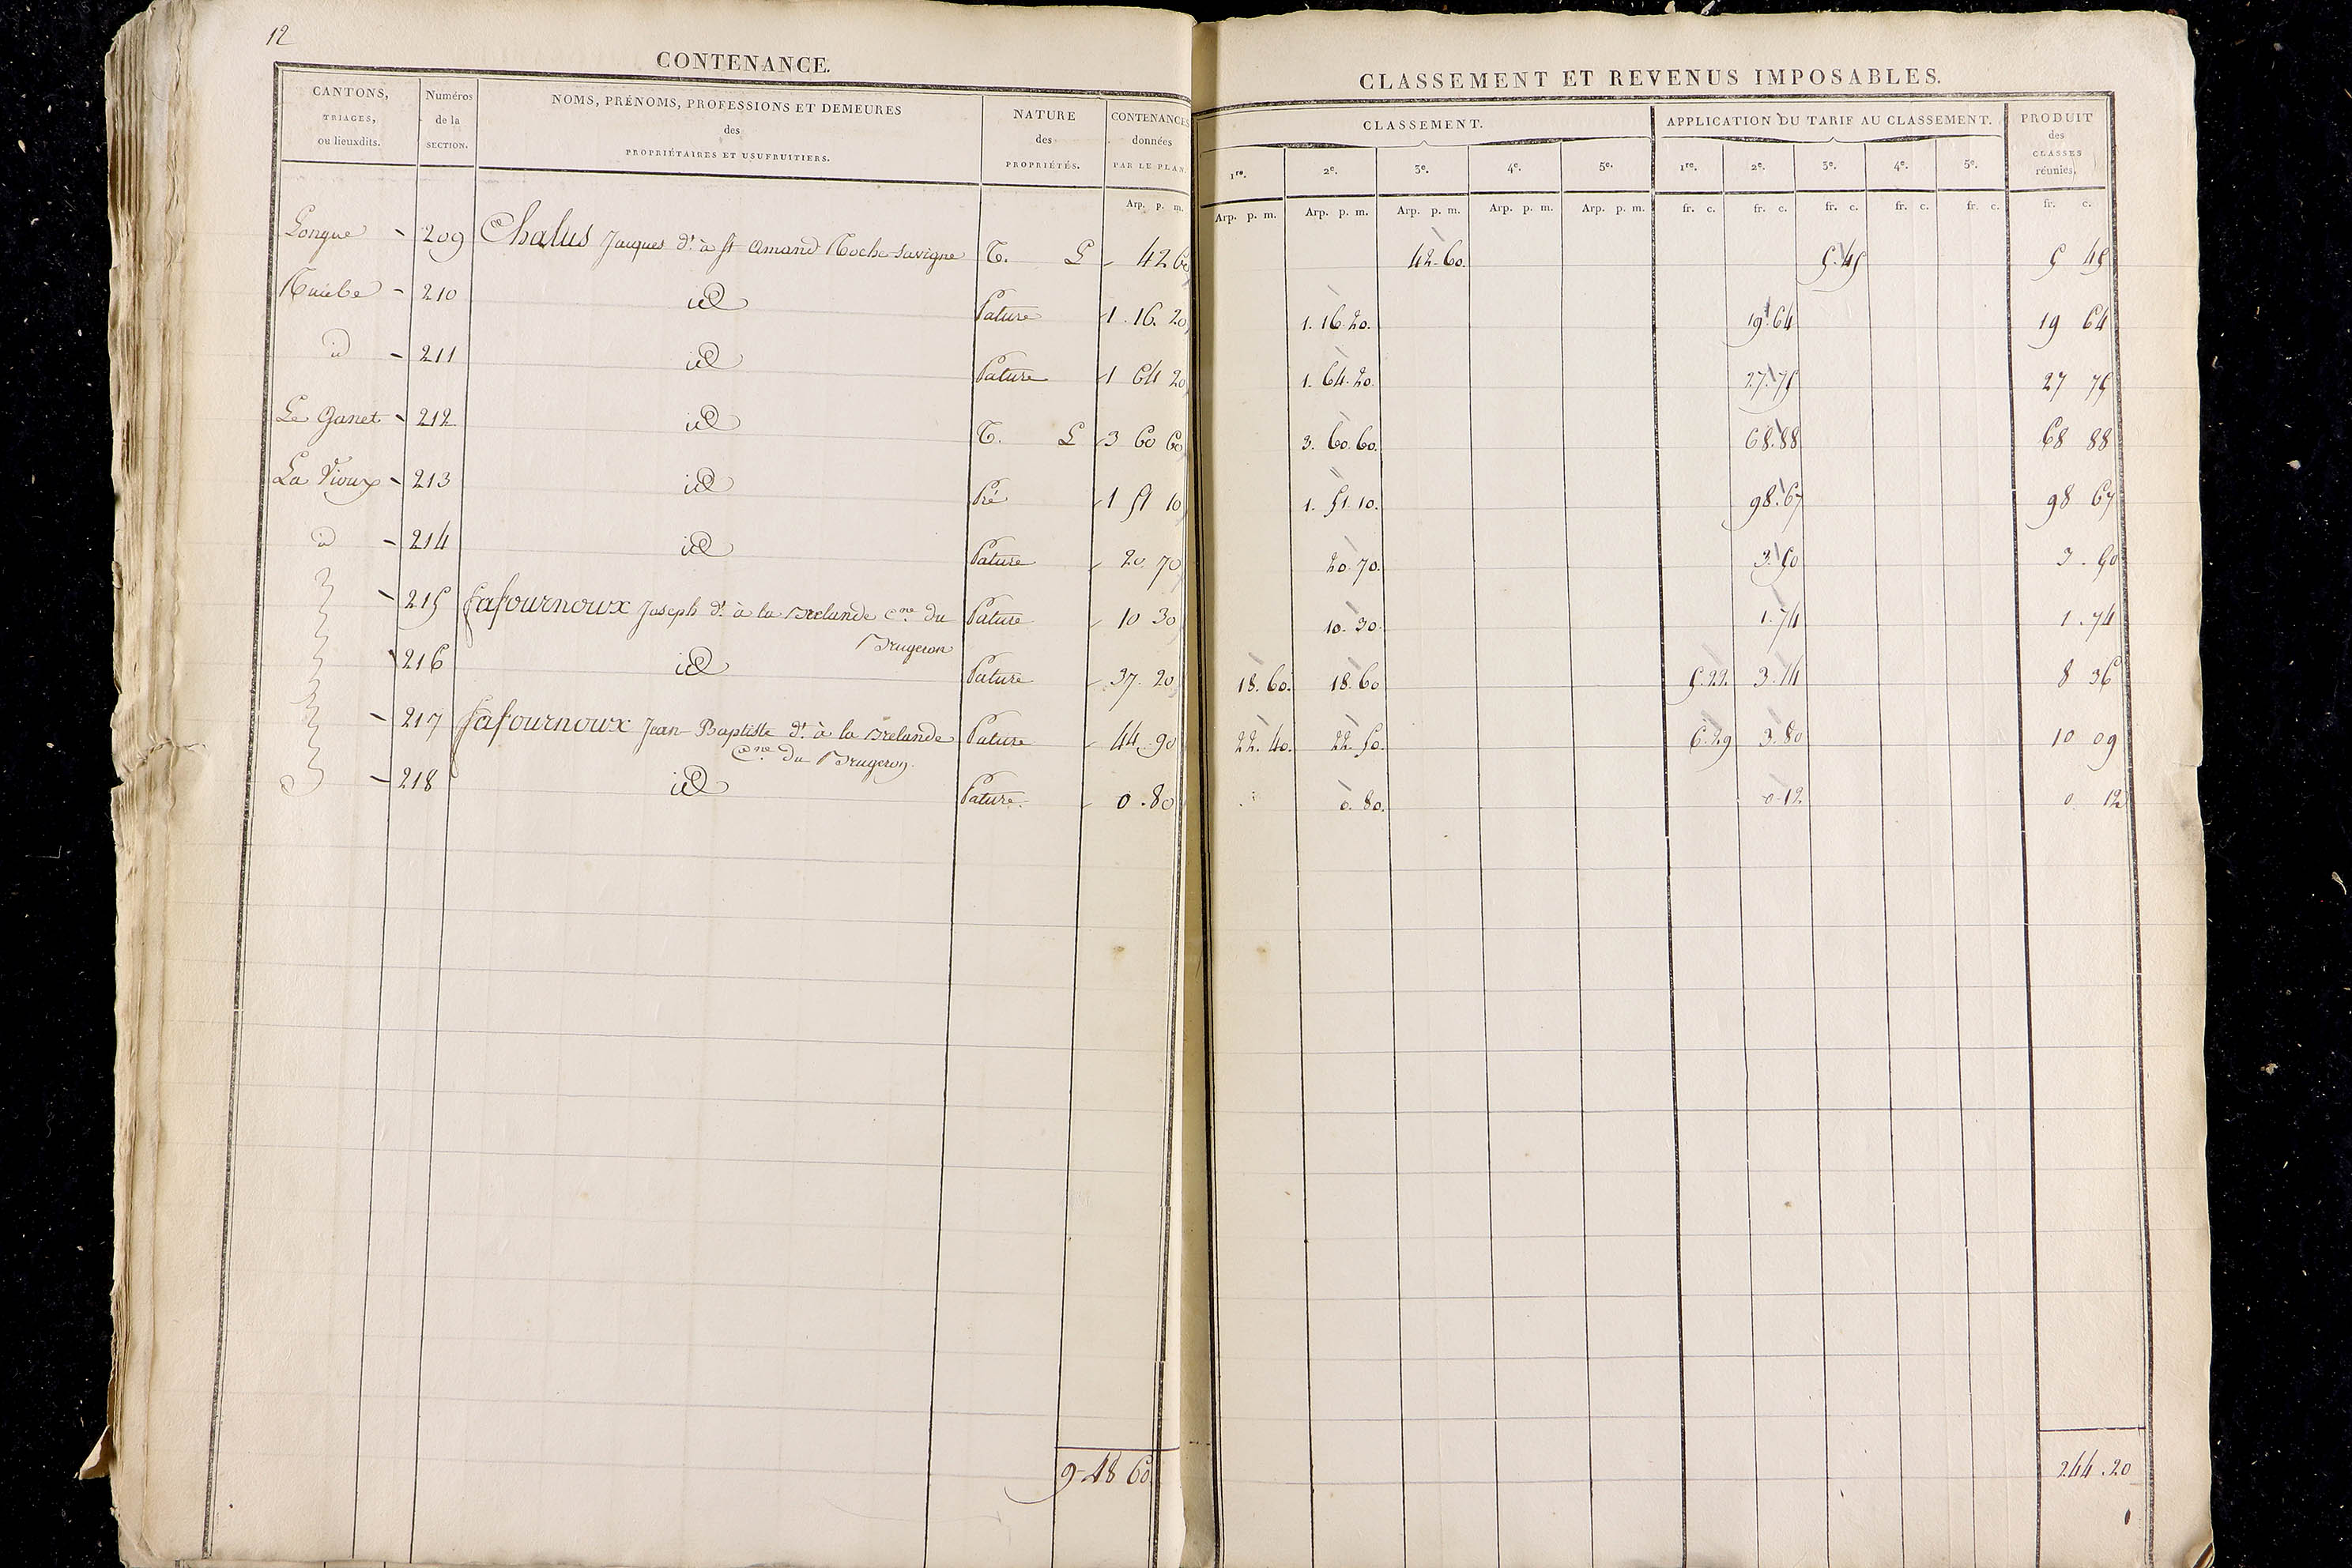 12
CONTENANCE.
CANTONS, TRIAGES, ou lieuxdits.
Numéros de la SECTION.
NOMS, PRÉNOMS, PROFESSIONS ET DEMEURES des PROPRIÉTAIRES ET USUFRUITIERS.
NATURE des PROPRIÉTÉS.
CONTENANCES données PAR LE PLAN.
Arp. p. m.
CLASSEMENT ET REVENUS IMPOSABLES.
CLASSEMENT.
APPLICATION DU TARIF AU CLASSEMENT.
PRODUIT des CLASSES réunies.
1re. 2e. 3e. 4e. 5e. 1re. 2e. 3e. 4e. 5e.
Arp. p. m. Arp. p. m. Arp. p. m. Arp. p. m. Arp. p. m. fr. c. fr. c. fr. c. fr. c. fr. c. fr. c.
Longue 209 Chalus Jacques dt. à St Amand Roche-Savigne T. L 42 60 42.60. 5.45 5 45
210 id Pature 1. 16. 20 1. 16. 20. 19.64 19 64
id 211 id Pature 1 64 20 1. 64. 20. 27.75 27 75
Le Ganet 212 id T. L 3 60 60 3. 60. 60. 68.88 68 88
La Vioux 213 id Pré 1 51 10 1. 51. 10. 98.67 98 67
id 214 id Pature 20. 70 20. 70. 3.50 3. 50
215 Lafournoux Joseph dt. à la Brelande cne. du Pature 10 30 10. 30. 1.74 1. 74
Brugeron
216 id Pature 37. 20 18. 60. 18. 60 5.22 3.14 8 36
217 Lafournoux Jean Baptiste dt. à la Brelande Pature 44. 90 22. 40. 22. 50. 6.29 3.80 10 09
cne. du Brugeron.
218 id Pature. 0. 80 0. 80. 0.12 0. 12
9-48 60
244.20